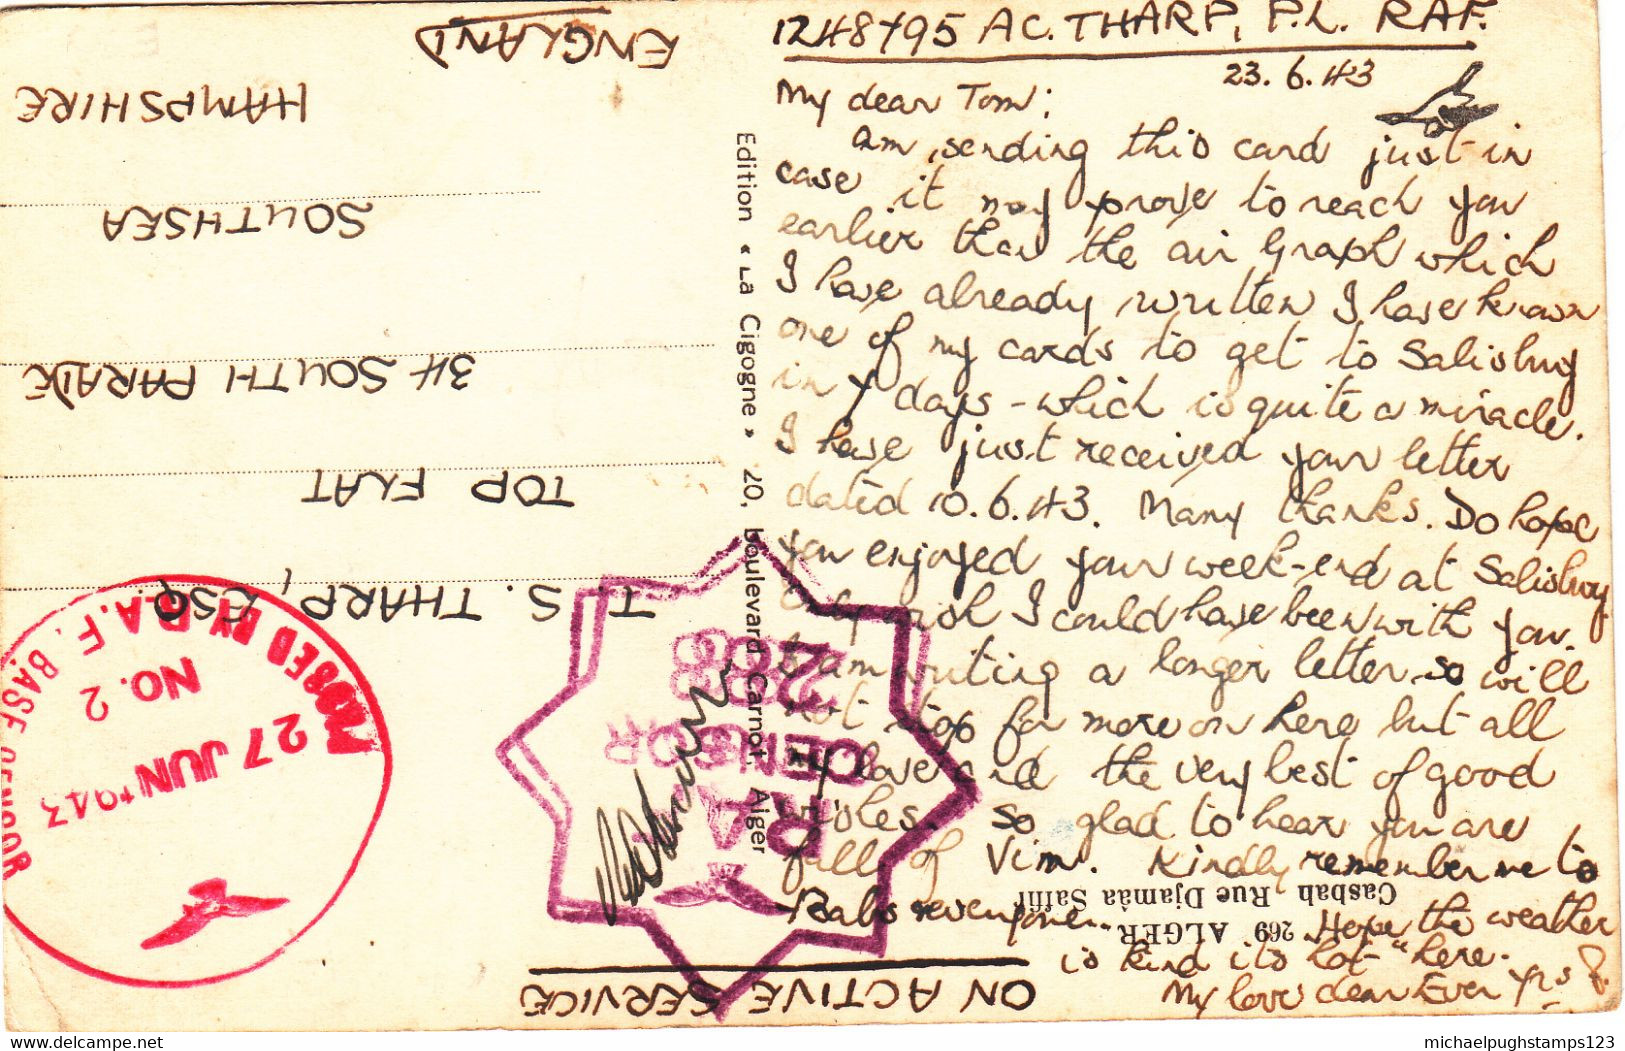 1248795 AC. THARP, P.L. RAF.
23.6.43
My dear Tom;
Am sending this card just in
case it may prove to reach you
earlier than the air Graph which
I have already written I have known
one of my cards to get to Salisbury
in 7 days - which is quite a miracle.
I have just received your letter
dated 10.6.43. Many thanks. Do hope
you enjoyed your week-end at Salisbury.
Only wish I could have been with you.
I am writing a longer letter so will
not stop for more on here but all
my love and the very best of good
wishes. So glad to hear you are
full of Vim. Kindly remember me to
Hope the weather
is kind its "hot" here.
My love dear Ever Yrs P.
269 ALGER
Casbah Rue Djamâa Safir
Edition « La Cigogne » 20, boulevard Carnot, Alger
ON ACTIVE SERVICE
T. S. THARP, ESQ
TOP FLAT
34 SOUTH PARADE
SOUTHSEA
HAMPSHIRE
ENGLAND
R.A.F.
CENSOR
BY R.A.F. BASE CENSOR
NO. 2
27 JUN 1943
michaelpughstamps123